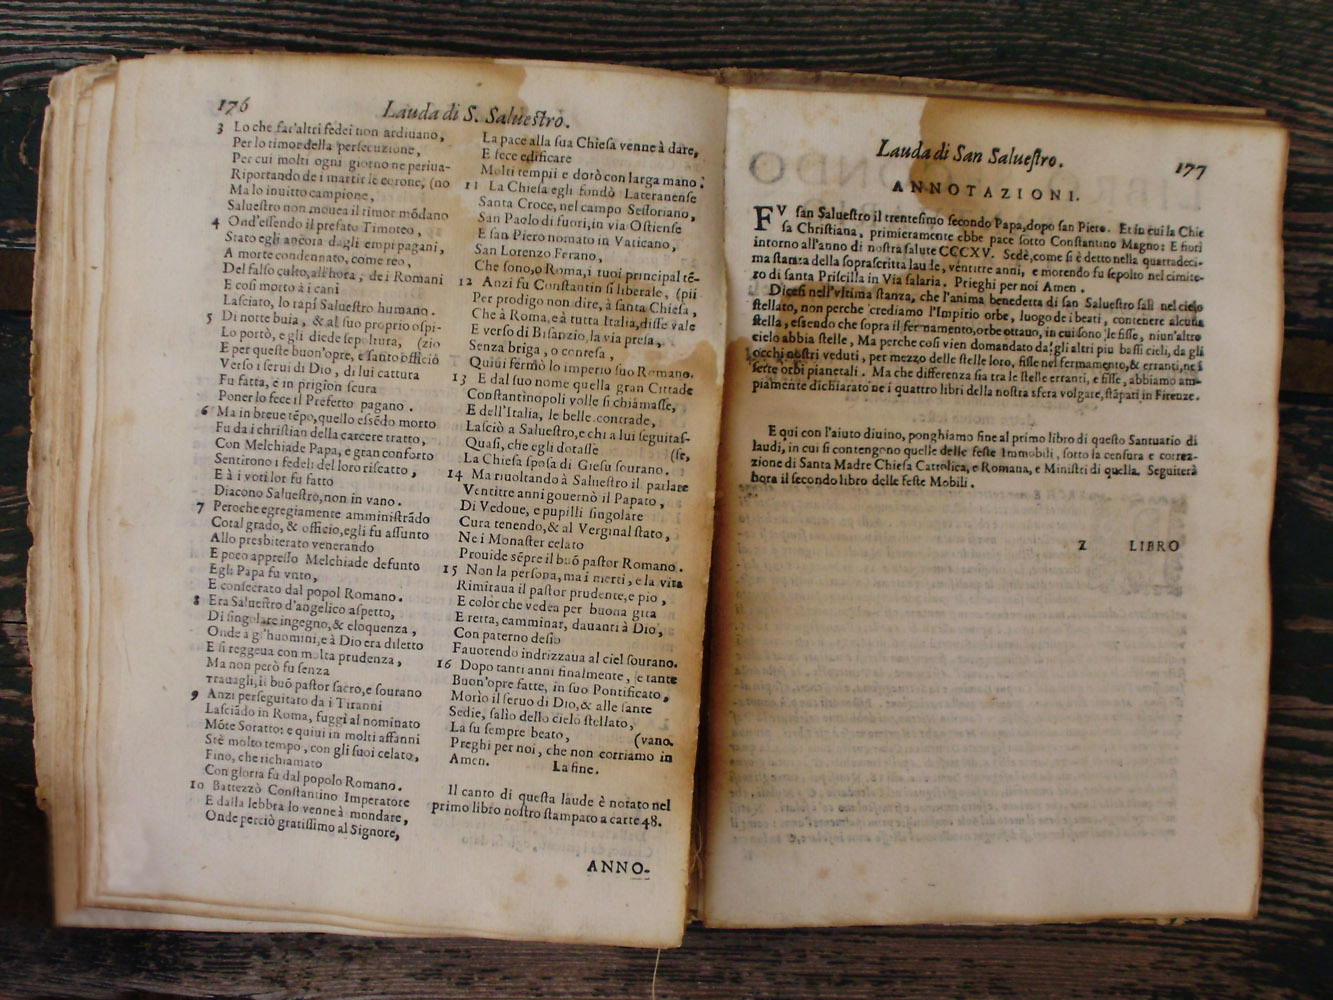 176
Lauda di S. Saluestro.
3 Lo che far'altri fedei non ardiuano,
Per lo timor della persecuzione,
Per cui molti ogni giorno ne periua-
Riportando de i martir le corone, (no
Ma lo inuitto campione,
Saluestro non mouea il timor mōdano
4 Ond'essendo il prefato Timoteo,
Stato egli ancora dagli empi pagani,
A morte condennato, come reo,
Del falso culto, all'hora, de i Romani
E cosi morto à i cani
Lasciato, lo rapi Saluestro humano.
5 Di notte buia, & al suo proprio ospi-
Lo portò, e gli diede sepoltura, (zio
E per queste buon'opre, e santo officiò
Verso i serui di Dio, di lui cattura
Fu fatta, e in prigion scura
Poner lo fece il Prefetto pagano.
6 Ma in breue tēpo, quello essēdo morto
Fu da i christian della carcere tratto,
Con Melchiade Papa, e gran conforto
Sentirono i fedeli del loro riscatto,
E à i voti lor fu fatto
Diacono Saluestro, non in vano.
7 Peroche egregiamente amministrādo
Cotal grado, & officio, egli fu assunto
Allo presbiterato venerando
E poco appresso Melchiade defunto
Egli Papa fu vnto,
E consecrato dal popol Romano.
8 Era Saluestro d'angelico aspetto,
Di singolare ingegno, & eloquenza,
Onde a g'huomini, e à Dio era diletto
E si reggeua con molta prudenza,
Ma non però fu senza
Trauagli, il buō pastor sacro, e sourano
9 Anzi perseguitato da i Tiranni
Lasciādo in Roma, fuggi al nominato
Mōte Soratto: e quiui in molti affanni
Stè molto tempo, con gli suoi celato,
Fino, che richiamato
Con gloria fu dal popolo Romano.
10 Battezzò Constantino Imperatore
E dalla lebbra lo venne à mondare,
Onde perciò gratissimo al Signore,
La pace alla sua Chiesa venne à dare,
E fece edificare
Molti tempii e dotò con larga mano:
11 La Chiesa egli fondò Lateranense
Santa Croce, nel campo Sessoriano,
San Paolo di fuori, in via Ostiense
E san Piero nomato in Vaticano,
San Lorenzo Ferano,
Che sono, o Roma, i tuoi principal tē-
12 Anzi fu Constantin si liberale, (pii
Per prodigo non dire, à santa Chiesa,
Che à Roma, e à tutta Italia, disse vale
E verso di Bisanzio, la via presa,
Senza briga, o contesa,
Quiui fermò lo imperio suo Romano.
13 E dal suo nome quella gran Cittade
Constantinopoli volle si chiamasse,
E dell'Italia, le belle contrade,
Lasciò a Saluestro, e chi a lui seguitas-
Quasi, che egli dotasse (se,
La Chiesa sposa di Giesu sourano.
14 Ma riuoltando à Saluestro il parlare
Ventitre anni gouernò il Papato,
Di Vedoue, e pupilli singolare
Cura tenendo, & al Verginal stato,
Ne i Monaster celato
Prouide sēpre il buō pastor Romano.
15 Non la persona, ma i merti, e la vita
Rimiraua il pastor prudente, e pio,
E color che vedea per buona gita
E retta, camminar, dauanti à Dio,
Con paterno desio
Fauorendo indrizzaua al ciel sourano.
16 Dopo tanti anni finalmente, e tante
Buon'opre fatte, in suo Pontificato,
Morio il seruo di Dio, & alle sante
Sedie, salio dello cielo stellato,
La su sempre beato, (vano.
Preghi per noi, che non corriamo in
Amen. La fine.
Il canto di questa laude è notato nel
primo libro nostro stampato a carte 48.
ANNO-
Lauda di San Saluestro. 177
ANNOTAZIONI.
FV san Saluestro il trentesimo secondo Papa, dopo san Piero. Et in cui la Chie
sa Christiana, primieramente ebbe pace sotto Constantino Magno: E fiorì
intorno all'anno di nostra salute CCCXV. Sedè, come si è detto nella quartadeci-
ma stanza della soprascritta laude, ventitre anni, e morendo fu sepolto nel cimite-
ro di santa Priscilla in Via salaria. Prieghi per noi Amen.
Dicesi nell'vltima stanza, che l'anima benedetta di san Saluestro sali nel cielo
stellato, non perche crediamo l'Impirio orbe, luogo de i beati, contenere alcuna
stella, essendo che sopra il fermamento, orbe ottauo, in cui sono le fisse, niun'altro
cielo abbia stelle, Ma perche cosi vien domandato da gli altri piu bassi cieli, da gli
occhi nostri veduti, per mezzo delle stelle loro, fisse nel fermamento, & erranti, ne i
sette orbi pianetali. Ma che differenza sia tra le stelle erranti, e fisse, abbiamo am-
piamente dichiarato ne i quattro libri della nostra sfera volgare, stāpati in Firenze.
E qui con l'aiuto diuino, ponghiamo fine al primo libro di questo Santuario di
laudi, in cui si contengono quelle delle feste Immobili, sotto la censura e correz-
zione di Santa Madre Chiesa Cattolica, e Romana, e Ministri di quella. Seguiterà
hora il secondo libro delle feste Mobili.
Z LIBRO